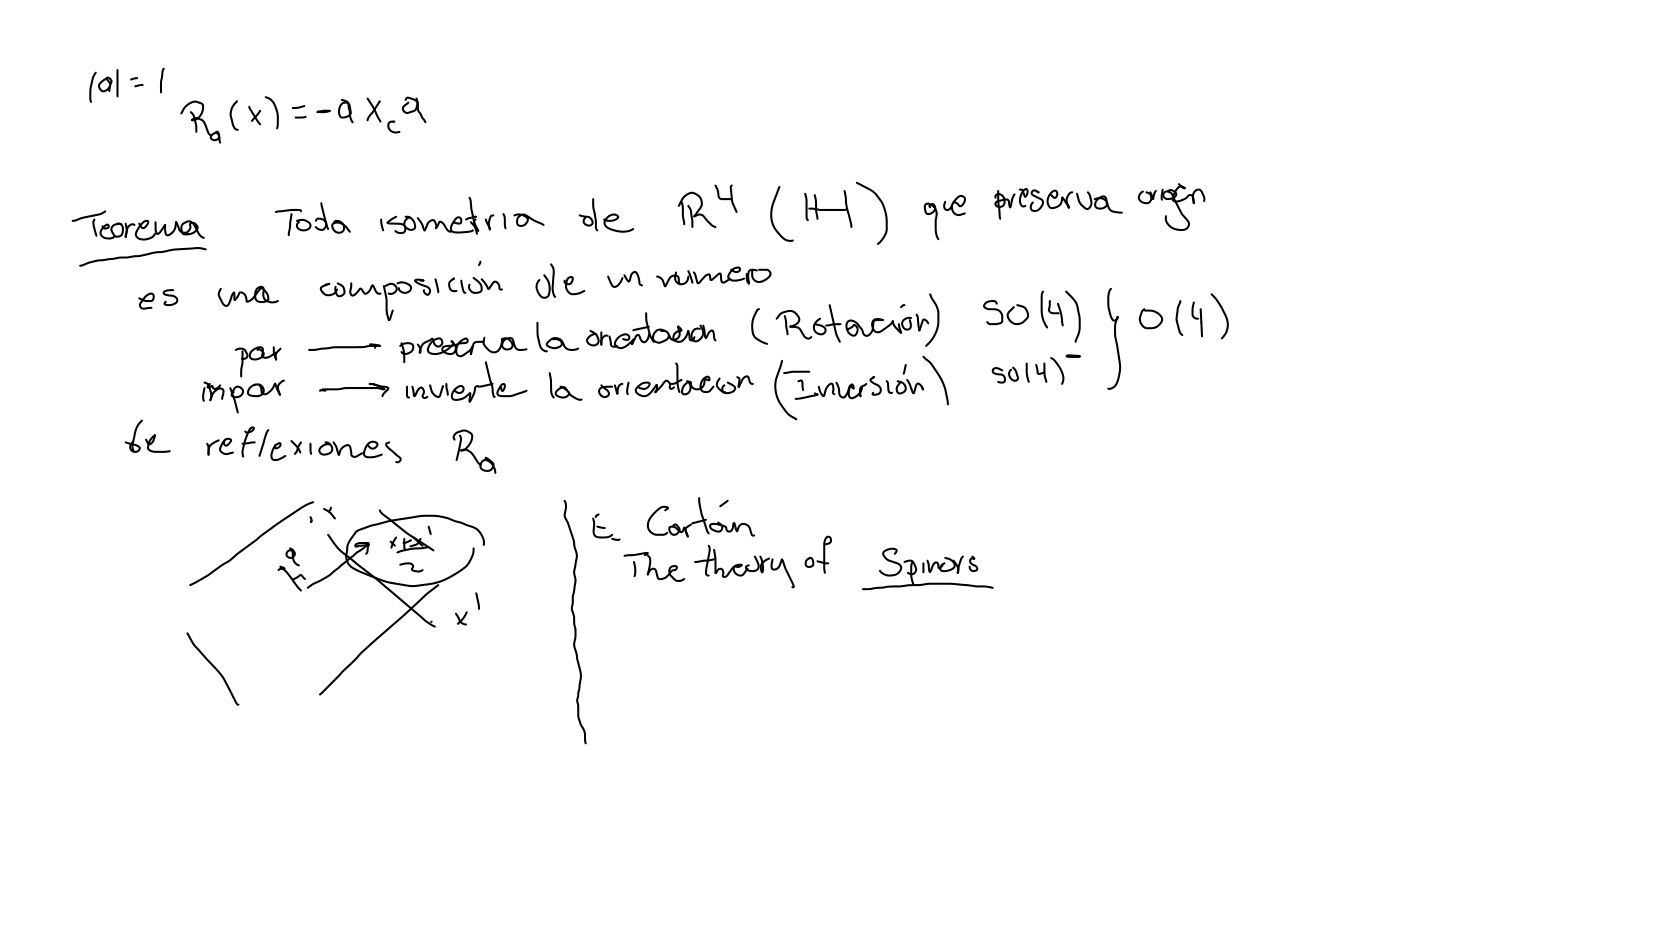 |a| = 1
Rₐ(x) = -a x_c a
Teorema Toda isometria de ℝ⁴ (ℍ) que preserva origen
es una composición de un numero
par → preserva la orientacion (Rotación) SO(4) } O(4)
impar → invierte la orientacion (Inversión) SO(4)⁻
de reflexiones Rₐ
x
x+x'
2
x'
E. Cartán
The theory of Spinors